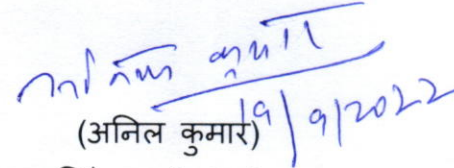 अनिल कुमार
19/9/2022
(अनिल कुमार)